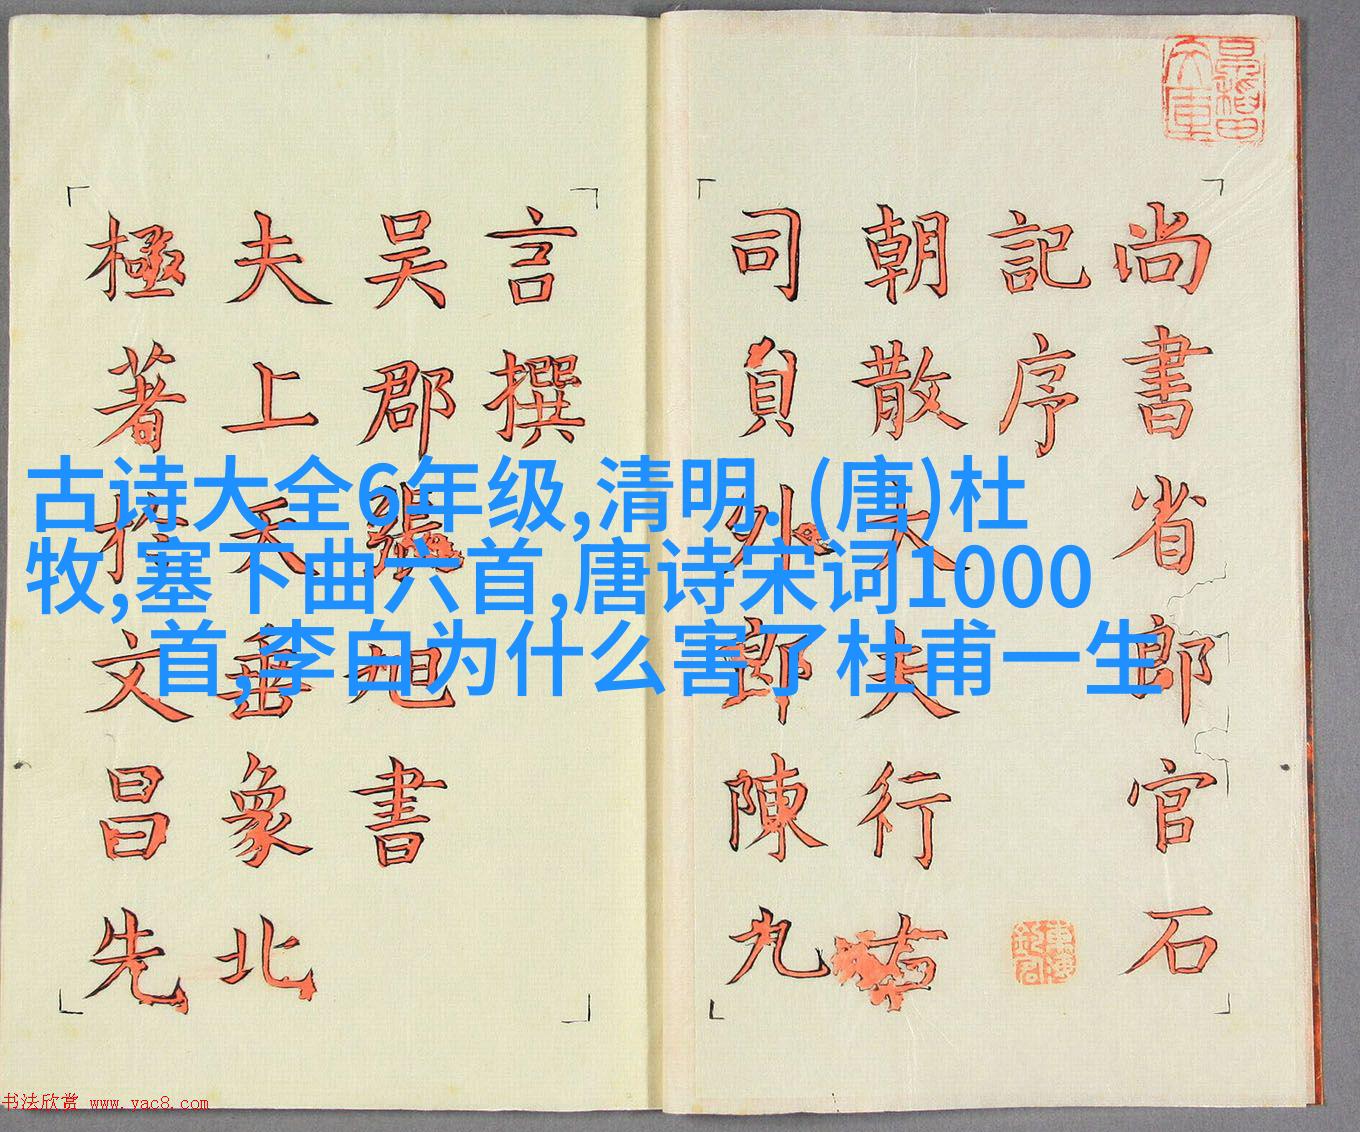 尚書省郎官石
記序
朝散大夫行右
司員外郎陳九
言撰
吴郡張旭書
夫上天垂象北
極著於文昌先
古诗大全6年级,清明. (唐)杜
牧,塞下曲六首,唐诗宋词1000
首,李白为什么害了杜甫一生
书法欣赏 www.yac8.com